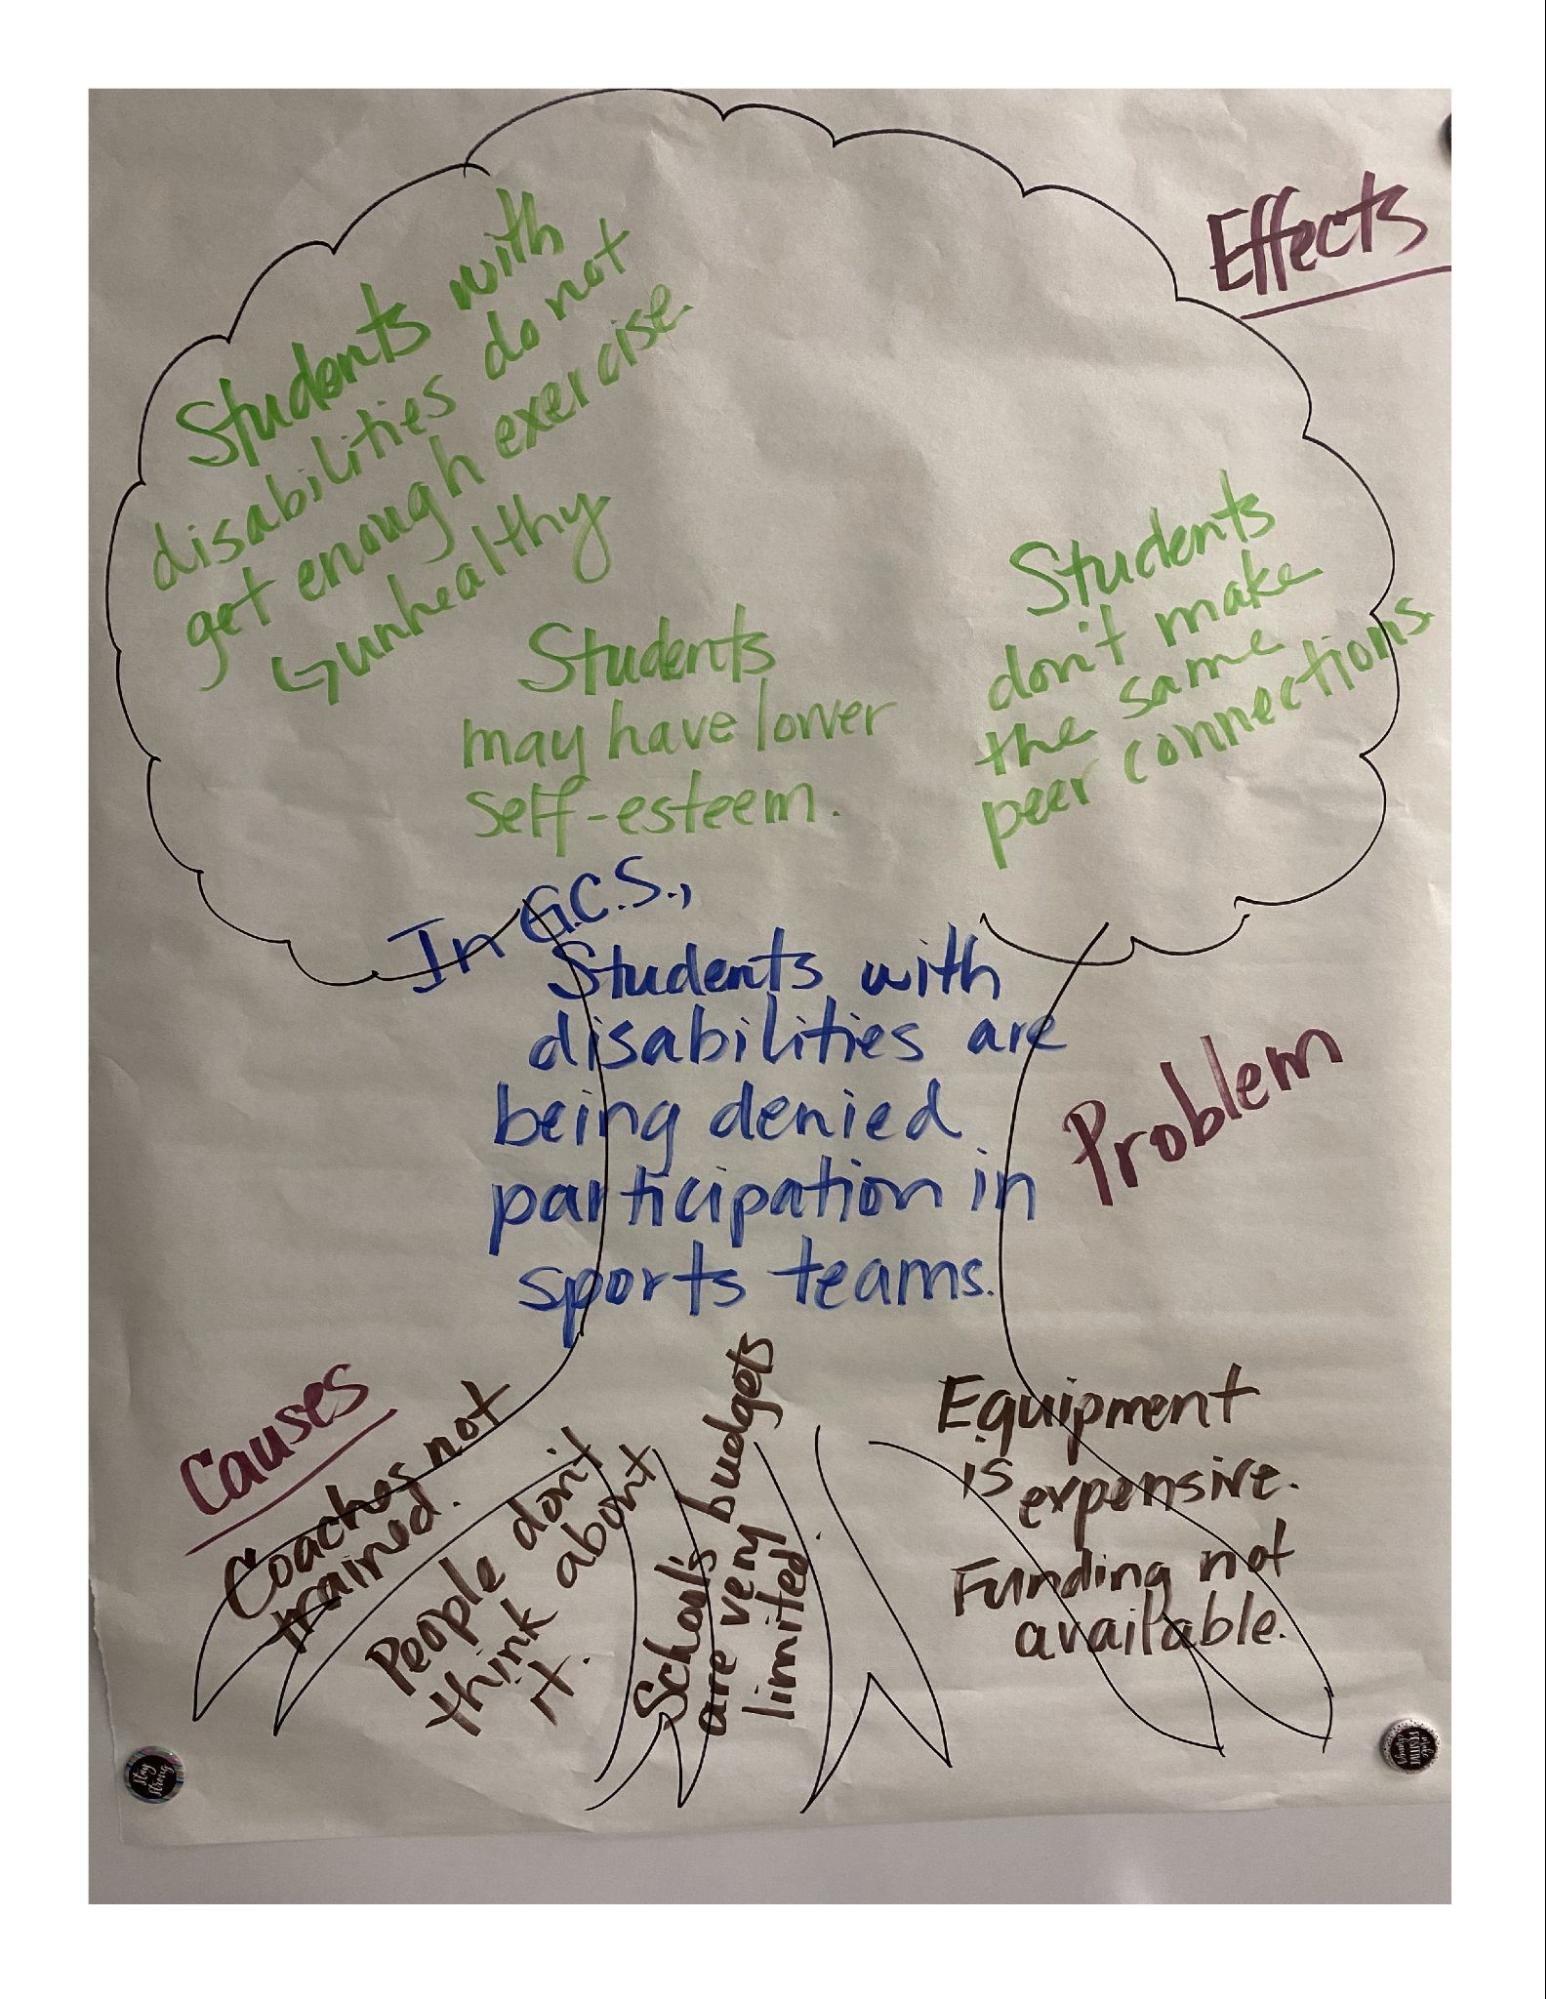 Effects
Students with
disabilities do not
get enough exercise.
↳ unhealthy
Students
may have lower
self-esteem.
Students
don't make
the same
peer connections.
In G.C.S.,
Students with
disabilities are
being denied
participation in
sports teams.
Problem
Causes
Coaches not
trained.
People don't
think about
it.
School's budgets
are very
limited
Equipment
is expensive.
Funding not
available.
Stay
Strong